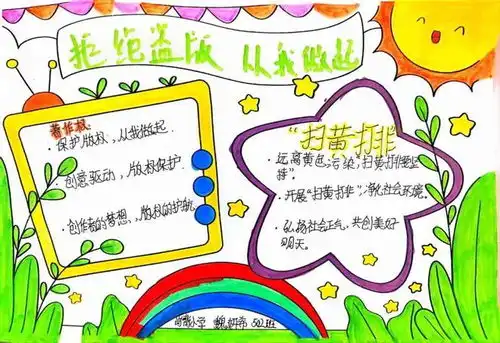 拒绝盗版 从我做起
著作权:
·保护版权,从我做起.
·创意驱动,版权保护
·创作者的梦想,版权的护航
"扫黄打非"
·远离黄色污染,扫黄打非要坚
持".
·开展"扫黄打非",净化社会环境。
·弘扬社会正气,共创美好
明天。
小学 魏妍希 502班